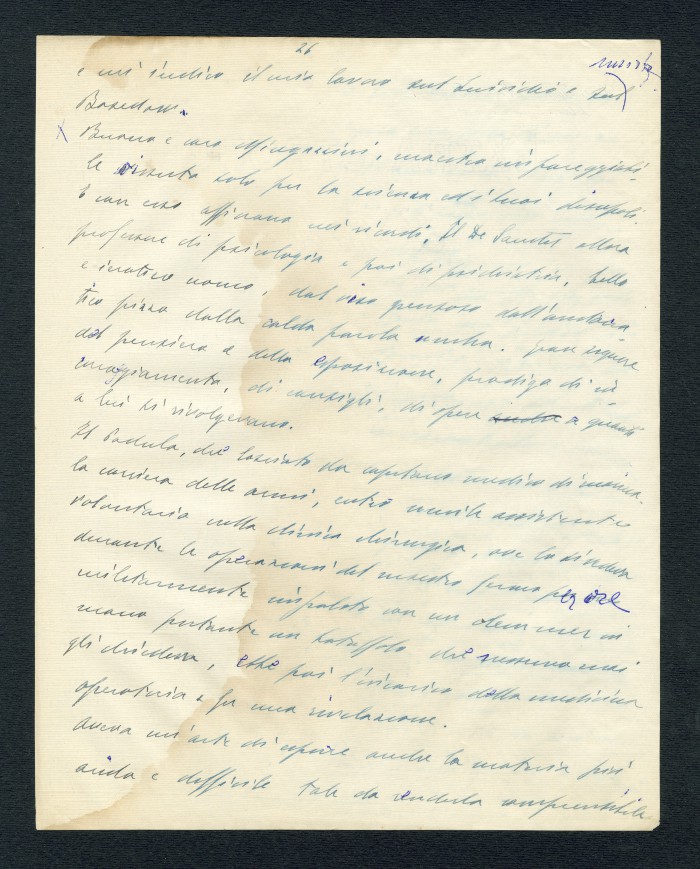 26
e mi indica il mio lavoro sul suicidio e sul
Basedow.
Buono e caro Mingazzini, maestro impareggiabi-
le vissuto solo per la scienza ed i suoi discepoli.
E con essa affiorano nei ricordi, Il De Sanctis allora
professore di psicologia e poi di psichiatria, bello
e ieratico uomo, dal viso pensoso dall'andatura
calda parola. Gran signore
del pensiero e della esposizione, prodigo di in-
coraggiamento, di consigli, di opere a quanti
a lui si rivolgevano.
Il Padula, che lasciata da capitano medico di marina
la carriera delle armi, entrò umile assistente
volontario nella clinica chirurgica, ove lo si vedeva
durante le operazioni del maestro fermo per ore
militarmente impalato con un in
mano portante un batuffolo che nessuno mai
gli chiedeva, ebbe poi l'incarico della medicina
operatoria e fu una rivelazione.
Aveva un'arte di esporre anche la materia più
arida e difficile tale da renderla comprensibile